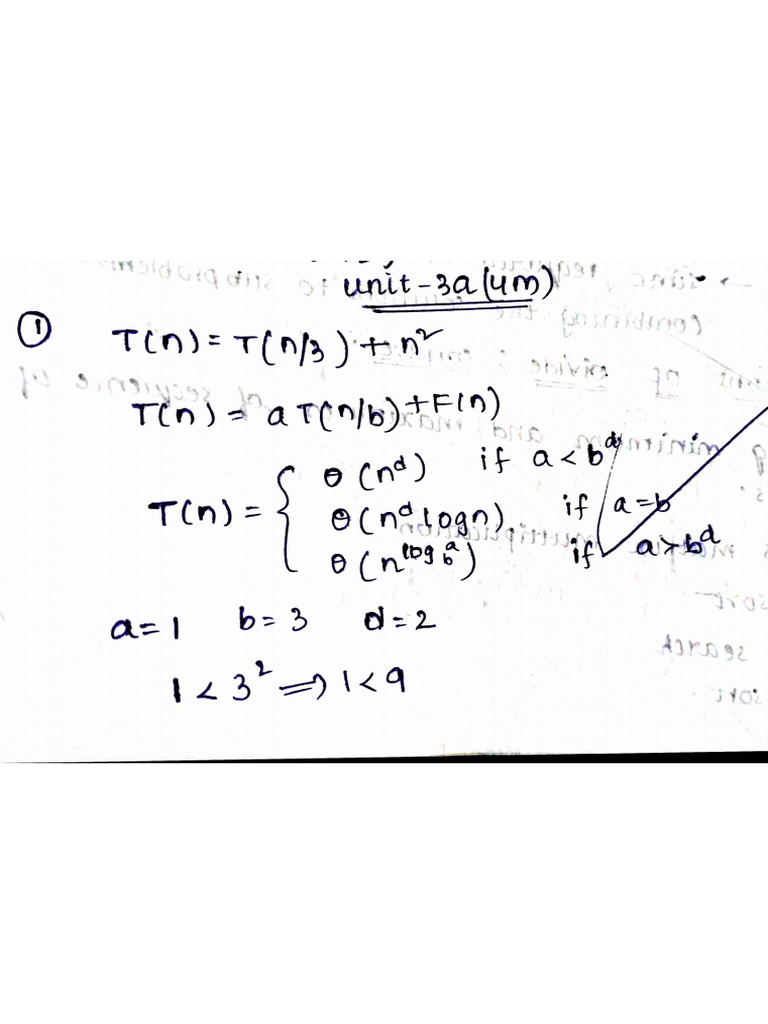 unit-3a(4m)
① T(n) = T(n/3) + n²
T(n) = a T(n/b) + F(n)
T(n) = { θ(n^d) if a < b^d
θ(n^d logn) if a = b
θ(n^log_b^a) if a > b^d
a = 1 b = 3 d = 2
1 < 3² ⟹ 1 < 9